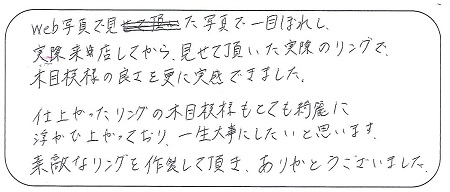 web写真で見た写真で一目ぼれし、
実際来店してから、見せて頂いた実際のリングで、
木目模様の良さを更に実感できました。
仕上がったリングの木目模様もとても綺麗に
浮かび上がっており、一生大事にしたいと思います。
素敵なリングを作製して頂き、ありがとうございました。